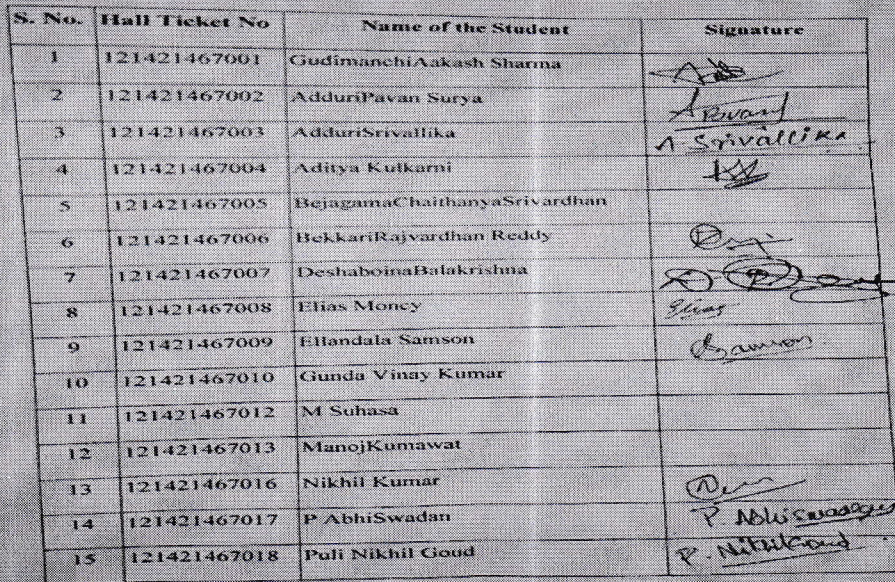 S. No. Hall Ticket No Name of the Student Signature
1 121421467001 GudimanchiAakash Sharma
2 121421467002 AdduriPavan Surya A Pavan
3 121421467003 AdduriSrivallika A Srivallika
4 121421467004 Aditya Kulkarni
5 121421467005 BejagamaChaithanyaSrivardhan
6 121421467006 BekkariRajvardhan Reddy
7 121421467007 DeshaboinaBalakrishna
8 121421467008 Elias Moncy Elias
9 121421467009 Ellandala Samson Samson
10 121421467010 Gunda Vinay Kumar
11 121421467012 M Suhasa
12 121421467013 ManojKumawat
13 121421467016 Nikhil Kumar
14 121421467017 P AbhiSwadan P. Abhi
15 121421467018 Puli Nikhil Goud P. Nikhil Goud